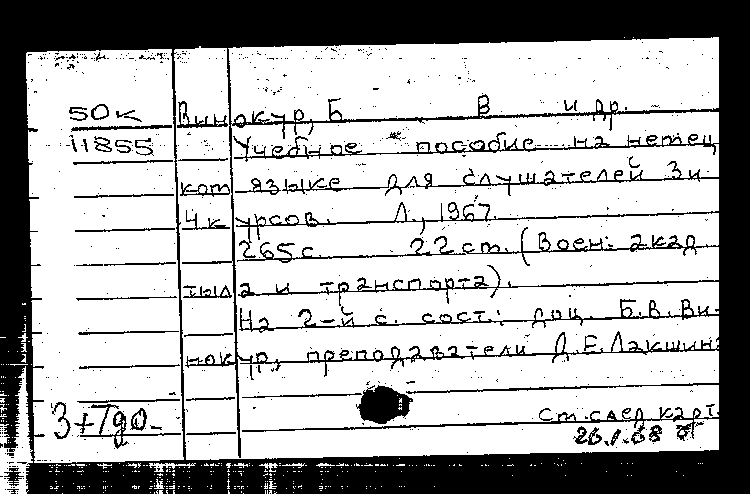 50к Винокур, Б В и др.
11855 Учебное пособие на немец
ком языке для слушателей 3 и
4 курсов. Л., 1967.
265 с. 22 ст. (Воен. акад
тыла и транспорта).
На 2-й с. сост.: доц. Б.В. Ви-
нокур, преподаватели Д.Е. Лакшина
3+Тдо-
См. след. карт.
26.1.68